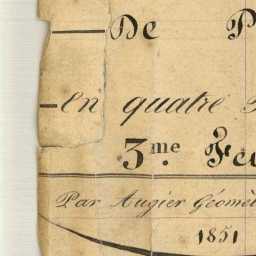 De P
en quatre
3.me Fe
Par Augier Géomè
1851